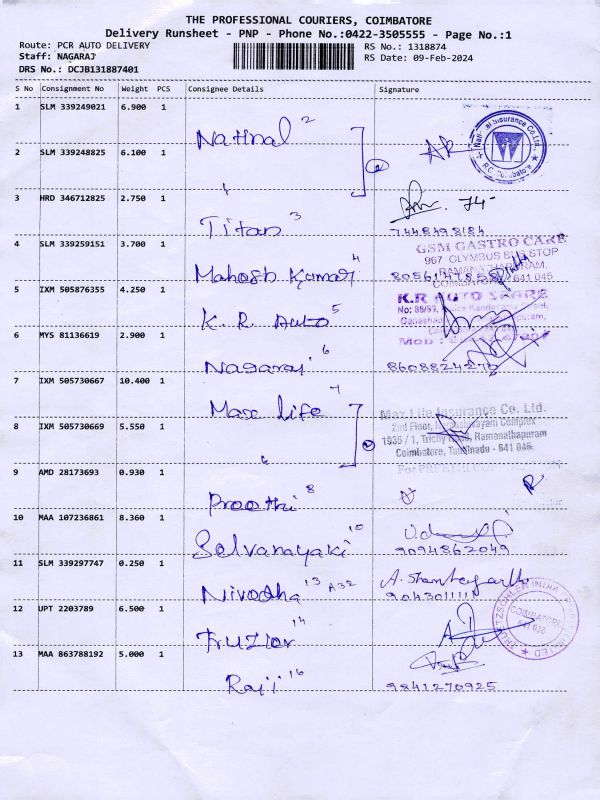 THE PROFESSIONAL COURIERS, COIMBATORE
Delivery Runsheet - PNP - Phone No.:0422-3505555 - Page No.:1
Route: PCR AUTO DELIVERY
RS No.: 1318874
Staff: NAGARAJ
RS Date: 09-Feb-2024
DRS No.: DCJB131887401
S No Consignment No Weight PCS Consignee Details Signature
1 SLM 339249021 6.900 1
Natinal 2
2 SLM 339248825 6.100 1
3 HRD 346712825 2.750 1
Titan 3
7448498184
4 SLM 339259151 3.700 1
GSM GASTRO CARE
967 OLYMBUS BUS STOP
RAMANATHAPURAM,
COIMBATORE 641 045
Mahesh Kumar 4
5 IXM 505876355 4.250 1
K.R AUTO SPARE
K. R. Auto 5
6 MYS 81136619 2.900 1
Nagaraj 6
8608824270
7 IXM 505730667 10.400 1
Max life 7
Max Life Insurance Co. Ltd.
2nd Floor, Complex
8 IXM 505730669 5.550 1
1935 / 1, Trichy Road, Ramanathapuram
Coimbatore, Tamilnadu - 641 045
9 AMD 28173693 0.930 1
Preethi 8
10 MAA 107236861 8.360 1
Selvanayaki 10
9094862049
11 SLM 339297747 0.250 1
Nivedha 13 A32
12 UPT 2203789 6.500 1
TRUETZSCHLER INDIA PRIVATE LIMITED
COIMBATORE
14
13 MAA 863788192 5.000 1
Raji 16
9841270925